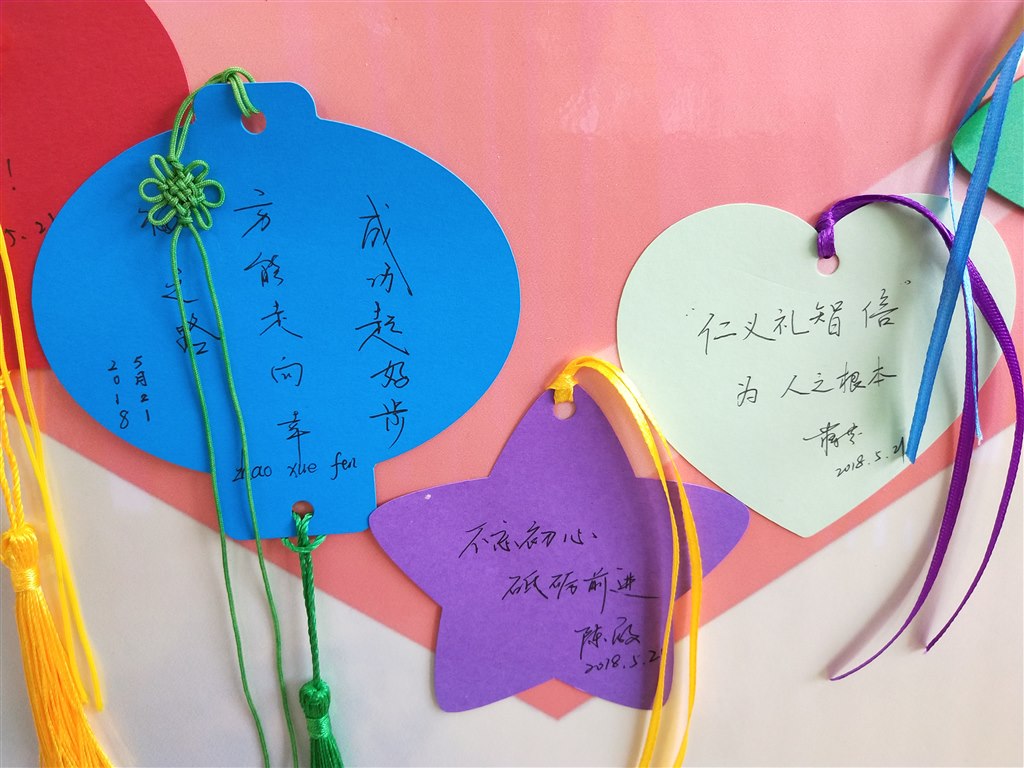 !
5.21
成功起好步
方能走向幸
福之路
zhao xue fen
5月21
2018
不忘初心、
砥砺前进
陈
2018.5.21
"仁义礼智倍"
为 人之根本
2018.5.21